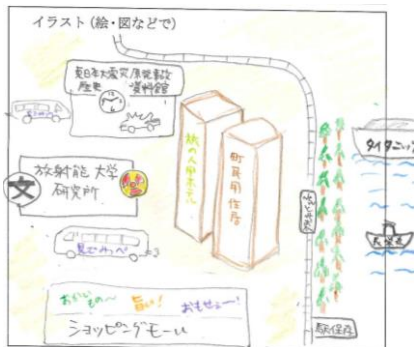 イラスト(絵・図などで)
東日本大震災原発事故
歴史 資料館
放射能 大学
研究所
文
旅の人用ホテル
町民用住居
タイタニック
駅保存
おかいもの〜 旨い! おもせぇ〜!
ショッピングモール